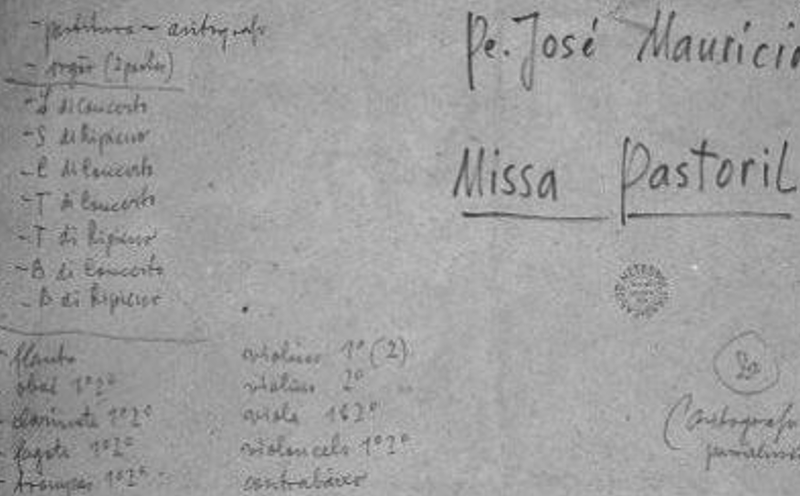 - partitura - autografo
- orgão (2 partes)
- S di Concerto
- S di Ripieno
- C di Concerto
- T di Concerto
- T di Ripieno
- B di Concerto
- B di Ripieno
- flauta
oboé 1º 2º
- clarinete 1º 2º
- fagote 1º 2º
- trompas 1º 2º
violino 1º (2)
violino 2º
viola 1 e 2º
violoncelo 1º 2º
contrabaixo
Pe. José Mauricio
Missa Pastoril
(autografo